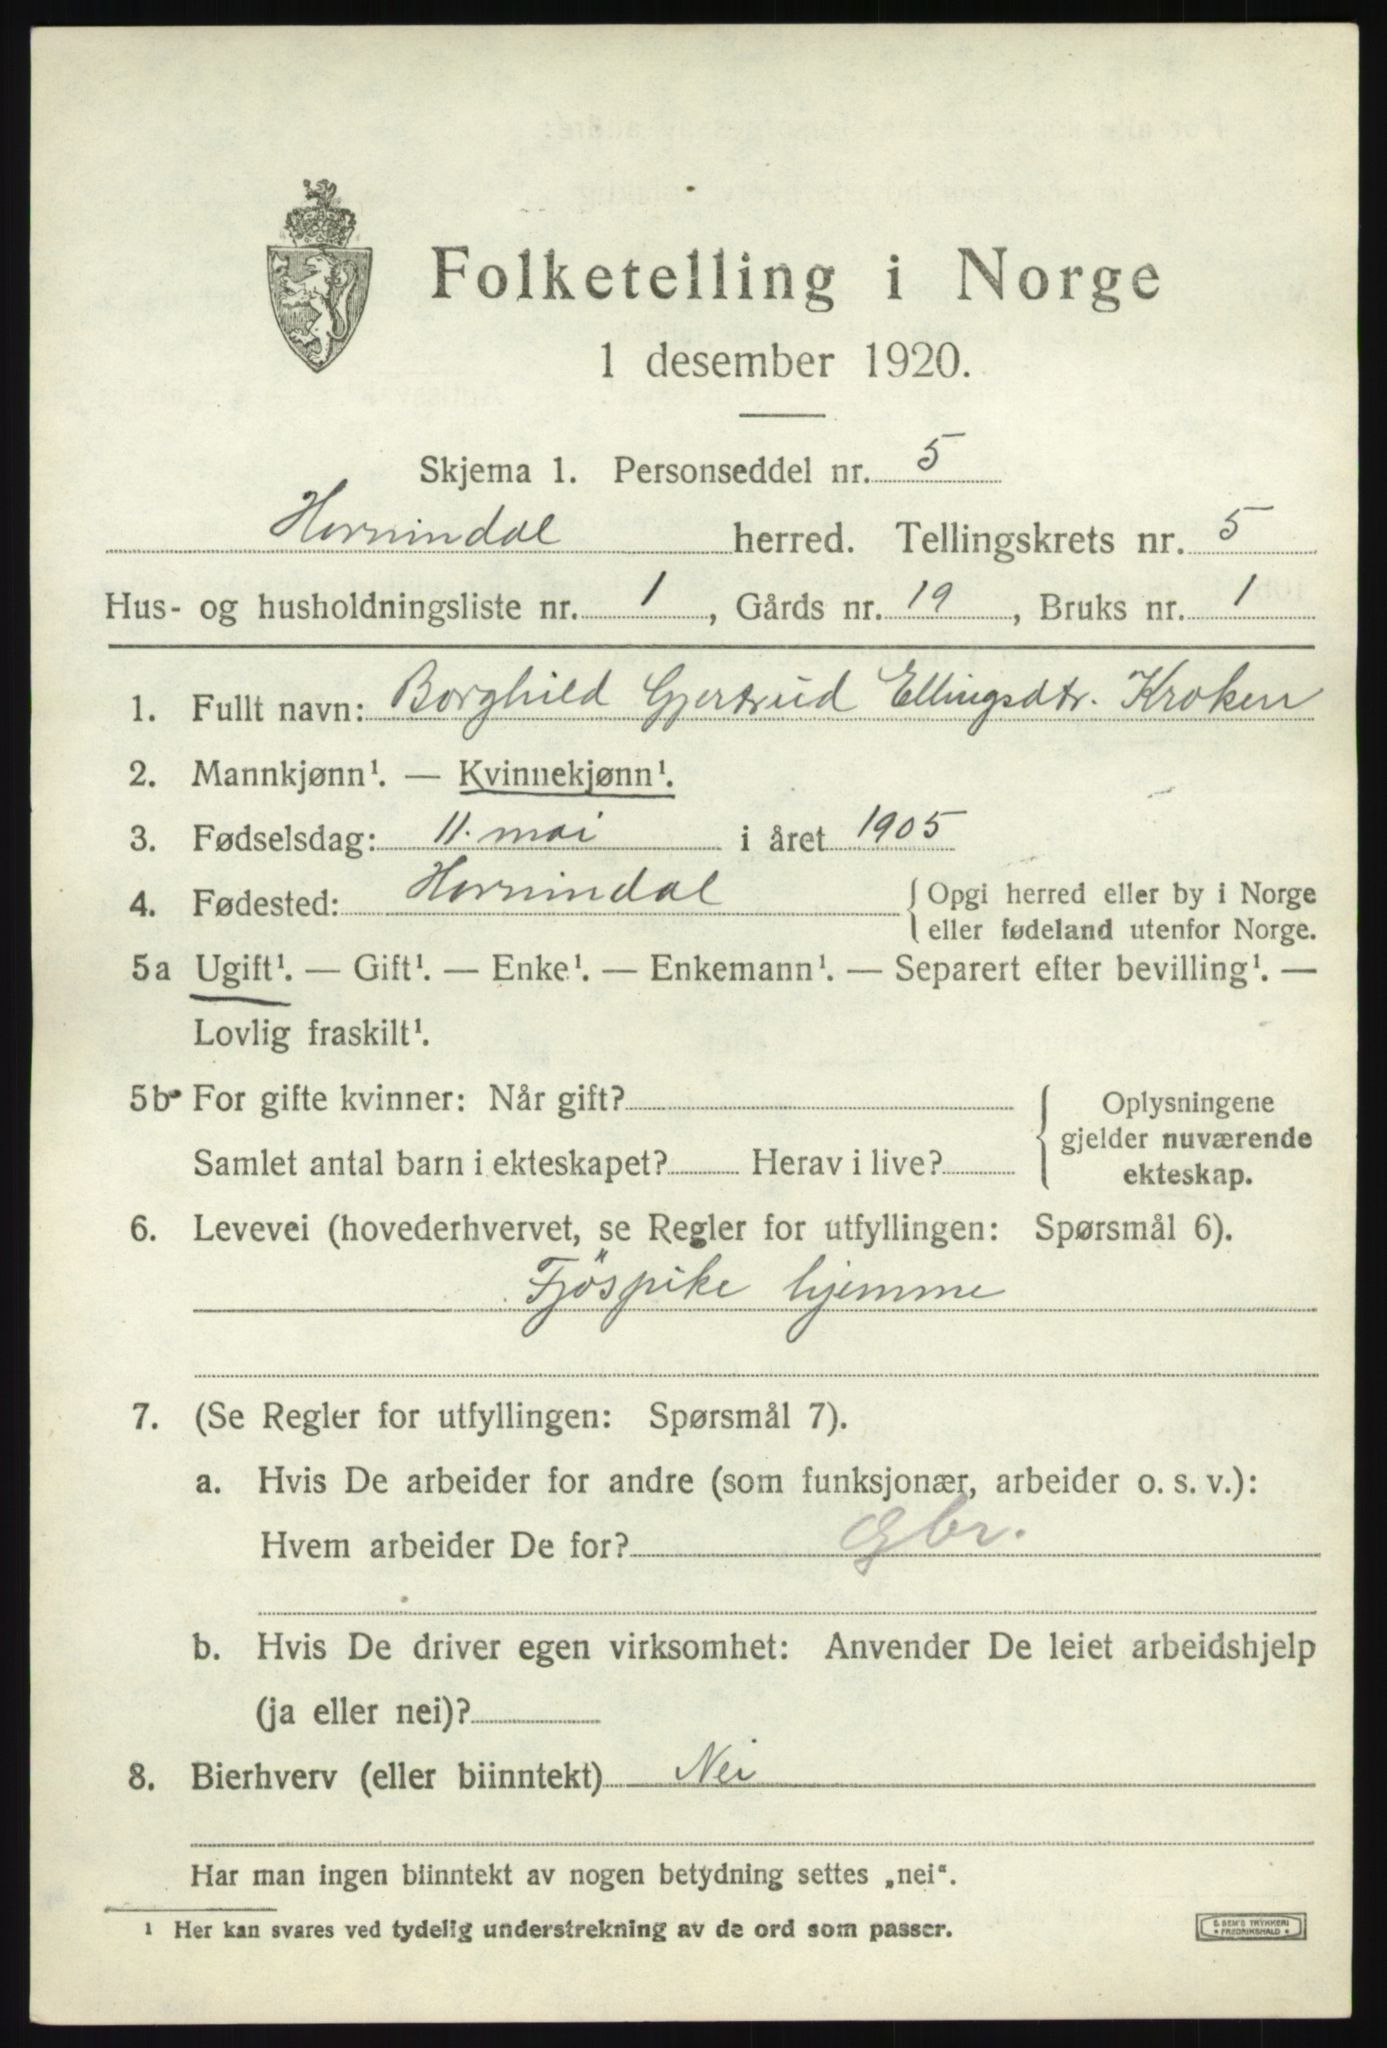 Folketelling i Norge
1 desember 1920.
Skjema 1. Personseddel nr. 5
Hornindal herred. Tellingskrets nr. 5
Hus- og husholdningsliste nr. 1, Gårds nr. 19, Bruks nr. 1
1. Fullt navn: Borghild Gjertrud Ellingsdtr. Kroken
2. Mannkjønn¹. — Kvinnekjønn¹.
3. Fødselsdag: 11. mai i året 1905
4. Fødested: Hornindal { Opgi herred eller by i Norge
eller fødeland utenfor Norge.
5a Ugift¹. — Gift¹. — Enke¹. — Enkemann¹. — Separert efter bevilling¹. —
Lovlig fraskilt¹.
5b. For gifte kvinner: Når gift? { Oplysningene
gjelder nuværende
Samlet antal barn i ekteskapet? Herav i live? ekteskap.
6. Levevei (hovederhvervet, se Regler for utfyllingen: Spørsmål 6).
Fjöspike hjemme
7. (Se Regler for utfyllingen: Spørsmål 7).
a. Hvis De arbeider for andre (som funksjonær, arbeider o. s. v.):
Hvem arbeider De for? Gbr.
b. Hvis De driver egen virksomhet: Anvender De leiet arbeidshjelp
(ja eller nei)?
8. Bierhverv (eller biinntekt) Nei
Har man ingen biinntekt av nogen betydning settes „nei“.
¹ Her kan svares ved tydelig understrekning av de ord som passer.
S. SEM'S TRYKKERI
• FREDRIKSHALD •